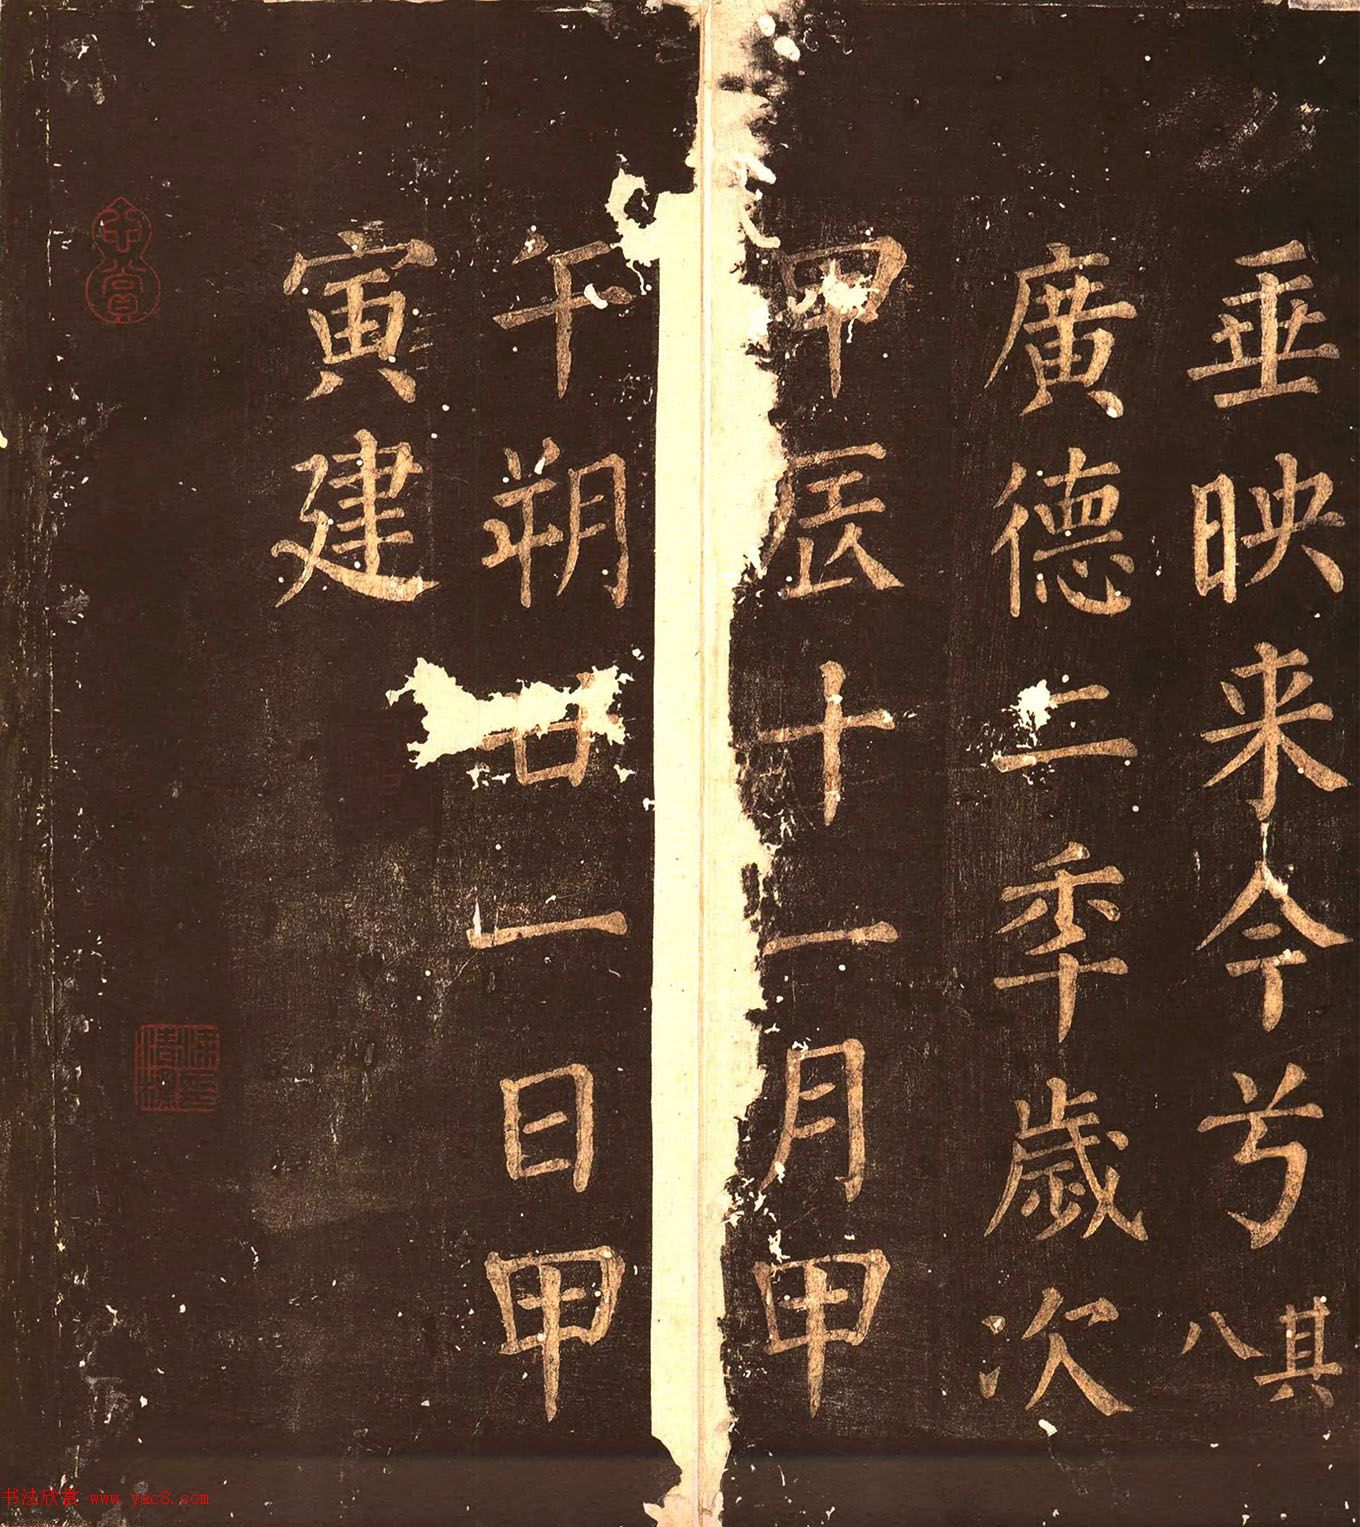 垂映来今兮其八
廣德二秊歲次
甲辰十一月甲
午朔廿一日甲
寅建
书法欣赏 www.yac8.com